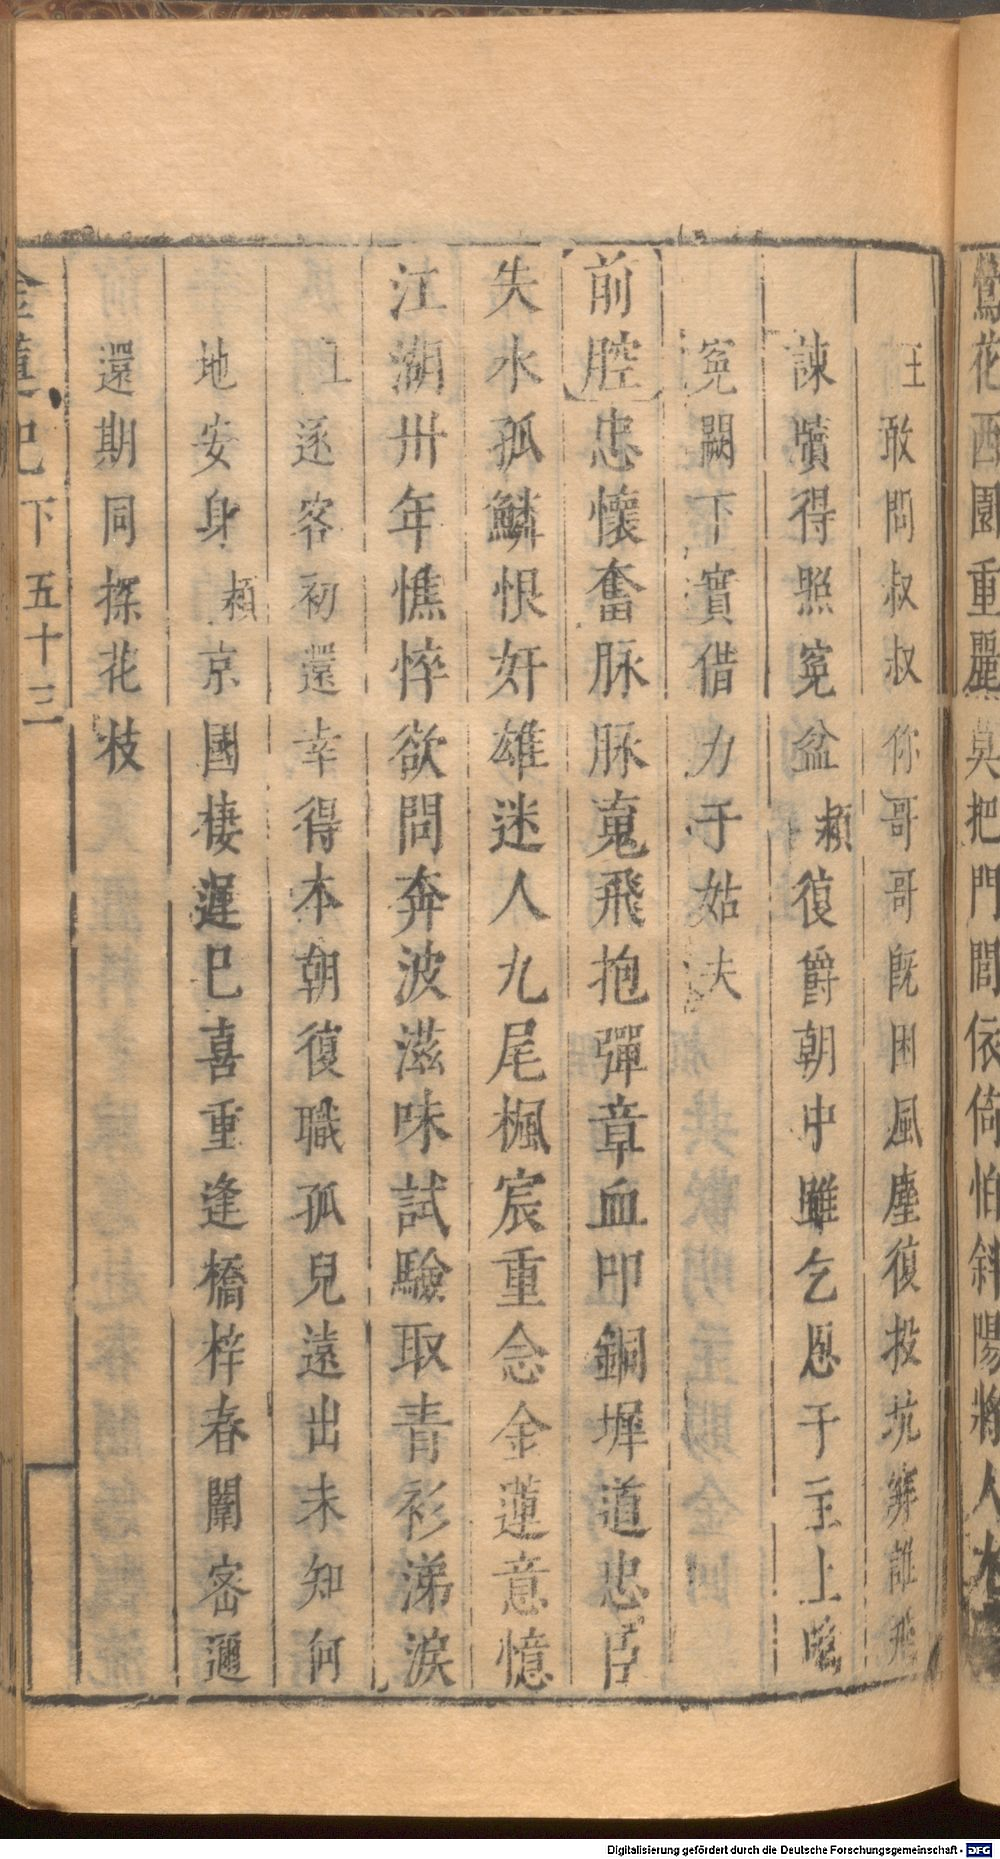 鶯花西園重麗莫把門閭依倚怕斜陽將人
王敢問叔叔你哥哥既困風塵復投坑穽誰飛
諫牘得照冤盆 頛復爵朝中雖乞恩于主上鳴
冤闕下實借力于姑夫
前腔 忠懷奮脉脉䰟飛抱彈章血叩銅墀道忠臣
失水孤鱗恨奸雄迷人九尾楓宸重念金蓮意憶
江湖卅年憔悴欲問奔波滋味試驗取青衫涕淚
王逐客初還幸得本朝復職孤兒遠出未知何
地安身 頛京國棲遲已喜重逢橋梓春闈密邇
還期同探花枝
金蓮記 下 五十三
Digitalisierung gefördert durch die Deutsche Forschungsgemeinschaft - DFG